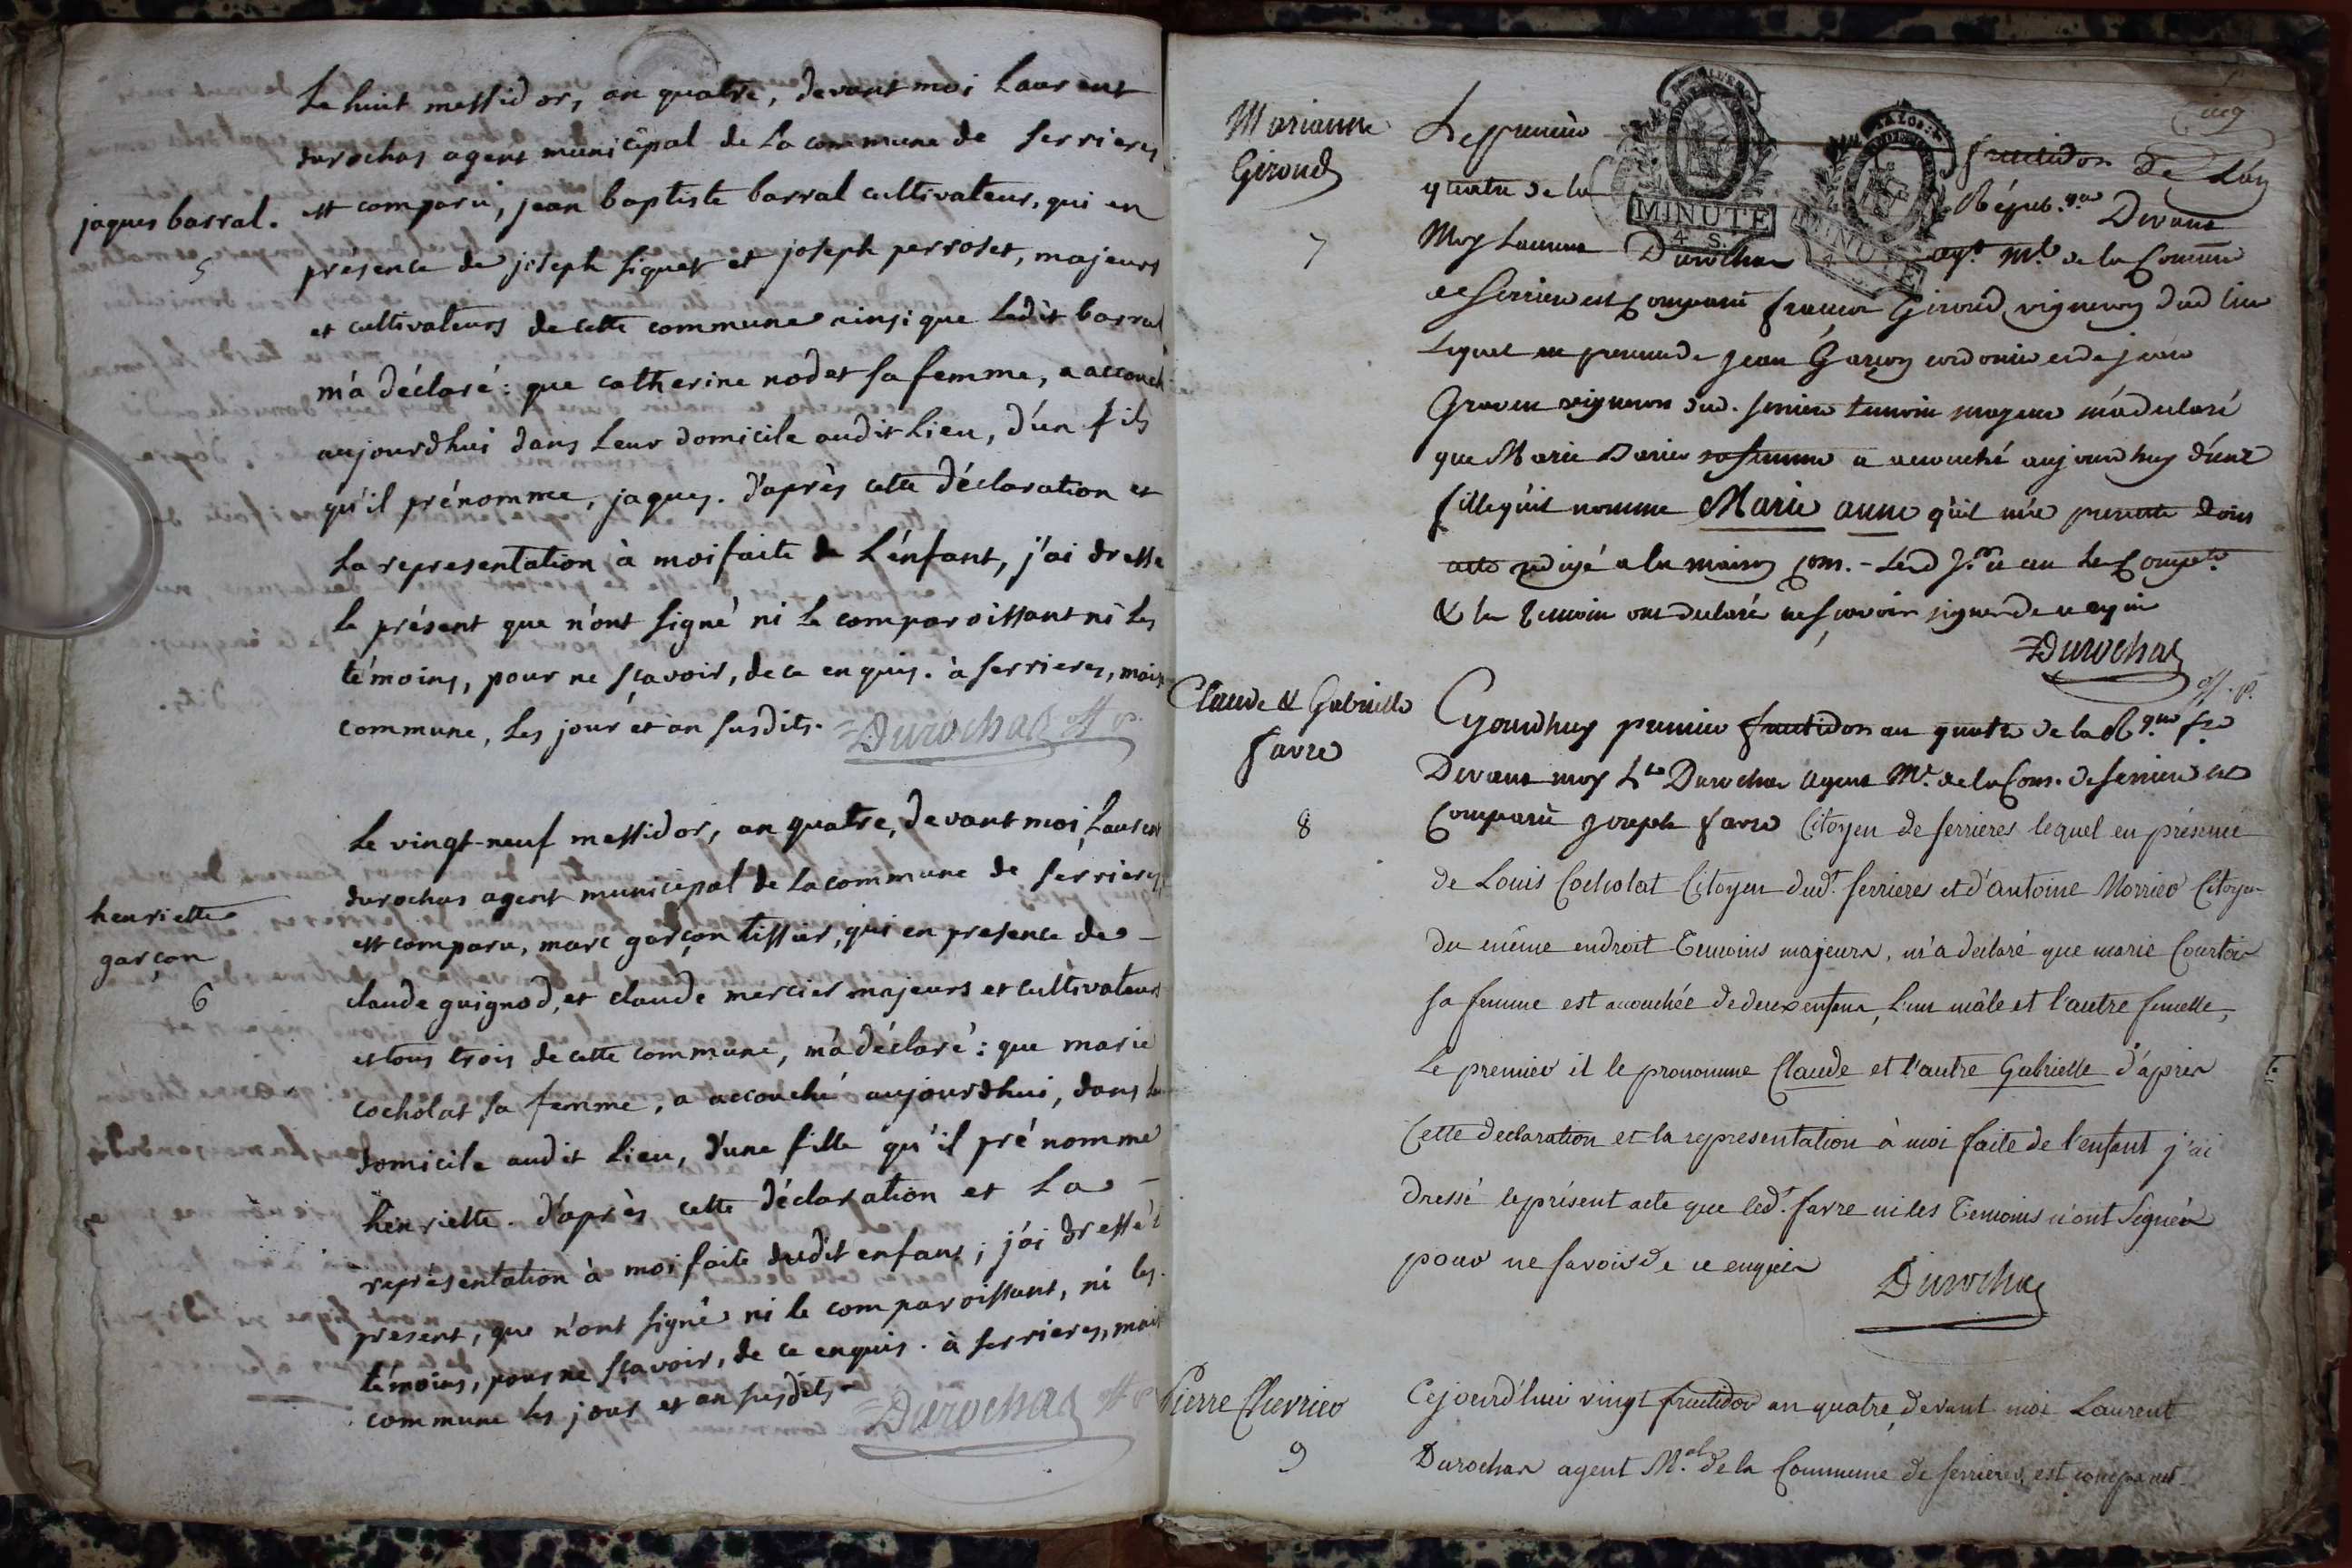 Le huit messidor, an quatre, devant moi Laurent
durochas agent municipal de La commune de serrieres
jaques barral.
5
est comparu, jean baptiste barral cultivateur, qui en
presence de joseph siguet et joseph perroset, majeurs
et cultivateurs de cette commune ainsi que Ledit barral
m'a déclaré: que catherine nodet sa femme, a accouch
aujourdhui dans Leur domicile audit Lieu, d'un fils
qu'il prénomme, jaques. d'après cette déclaration et
La representation à moi faite de L'énfant, j'ai dressé
le présent que n'ont signé ni le comparoissant ni les
témoins, pour ne sçavoir, de ce enquis. à serrieres, mais
commune, les jour et an susdits. Durochas off p.
Le vingt-neuf messidor, an quatre, devant moi Laurent
durochas agent municipal de La commune de serrieres
henriette
garçon
6
est comparu, marc garçon tissier, qui en presence de
claude guignod, et claude mercier majeurs et cultivateurs
et tous trois de cette commune, m'a déclaré: que marie
cocholat sa femme, a accouché aujourdhui, dans
domicile audit Lieu, d'une fille qu'il prénomme
henriette. d'après cette déclaration et La
représentation à moi faite dudit enfant; j'ai dressé
present, que n'ont signé ni le comparoissant, ni les
témoins, pour ne sçavoir, de ce enquis. à serrieres, mais
commune les jour et an susdits Durochas off p
Marianne
Giroud
7
Le premier fructidor De L'an
quatre de la Répub.que Devant
MINUTE
4 S.
MINUTE
Moy Laurent Durochas agt. Ml. de la Comune
de Serriere est Comparu françois Giroud vigneron dud lieu
Lequel en presence de jean Garçon cordonier et de jean
vigneron dud. serriere temoin majeur m'a declaré
que Marie sa femme a accouché aujourdhuy d'une
fille qu'il nomme Marie anne qu'il m'a presenté dont
acte redigé a la maison com. - Led J.r et an Le Compt.
& les temoin ont declaré ne sçavoir signer de ce enquis
Durochas
off. p.
Claude & Gabrielle
favre
8
Cejourdhuy premier fructidor an quatre de la Rque fse
Devant moy Lt Durochas agent Ml. de la Com. de serriere est
Comparu joseph favre Citoyen de serrieres lequel en présence
de Louis Cocholat Citoyen dudt. serrieres et d'antoine Morrier Citoyen
du même endroit Temoins majeurs, m'a declaré que marie Courtois
sa femme est accouchée de deux enfans, l'un mâle et l'autre femelle,
Le premier il le pronomme Claude et l'autre Gabrielle d'après
Cette declaration et la representation à moi faite de l'enfant j'ai
dressé le présent acte que led. favre ni les Temoins n'ont Signés
pour ne savoir de ce enquis
Durochas
Pierre Chevrier
9
Cejourd'hui vingt fructidor an quatre devant moi Laurent
Durochas agent M.al de la Commune de serrieres est comparu